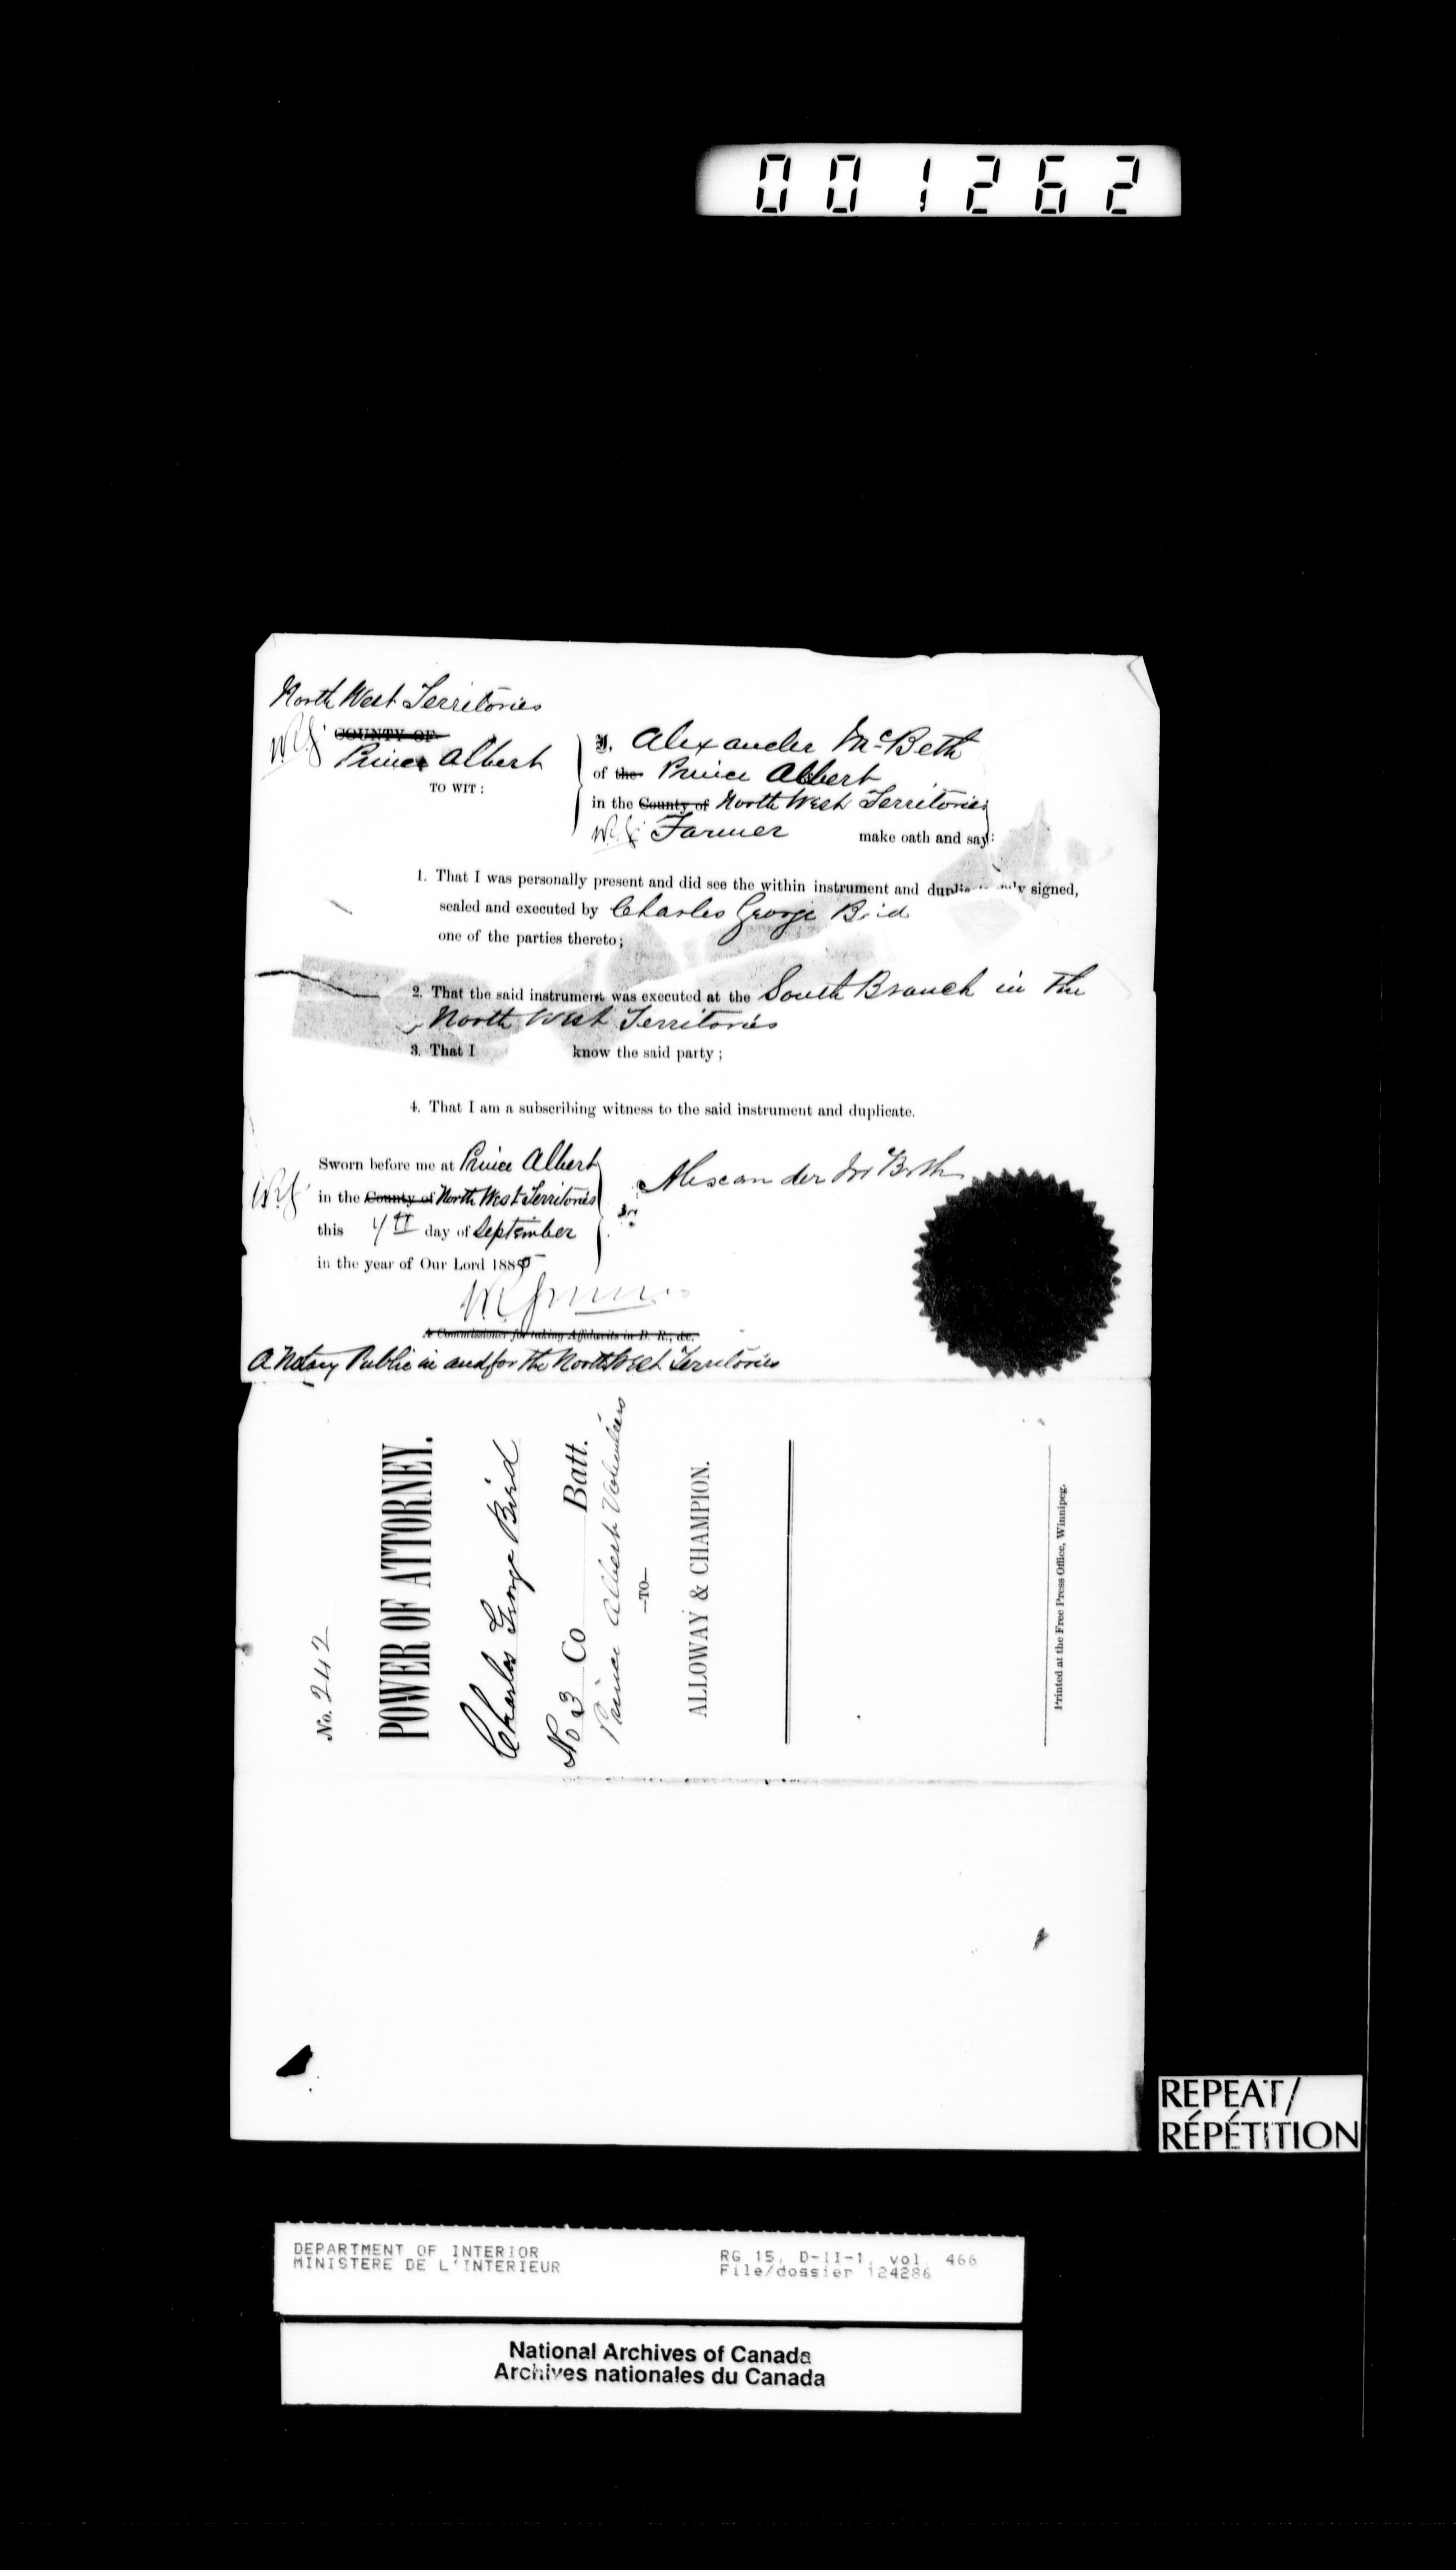 001262
North West Territories
COUNTY OF
Prince Albert
TO WIT:
I, Alexander McBeth
of the Prince Albert
in the County of North West Territories
Farmer make oath and say:
1. That I was personally present and did see the within instrument and duplicate duly signed,
sealed and executed by Charles George Bird
one of the parties thereto;
2. That the said instrument was executed at the South Branch in the
North West Territories
3. That I know the said party;
4. That I am a subscribing witness to the said instrument and duplicate.
Sworn before me at Prince Albert
in the County of North West Territories
this 4th day of September
in the year of Our Lord 1885
Alexander McBeth
A Commissioner for taking Affidavits in B. R., &c.
A Notary Public in and for the North West Territories
No. 242
POWER OF ATTORNEY.
Charles George Bird
No 3 Co Batt.
Prince Albert Volunteers
—TO—
ALLOWAY & CHAMPION.
Printed at the Free Press Office, Winnipeg.
REPEAT/
RÉPÉTITION
DEPARTMENT OF INTERIOR
MINISTERE DE L'INTERIEUR
RG 15, D-II-1, vol. 466
File/dossier 124286
National Archives of Canada
Archives nationales du Canada